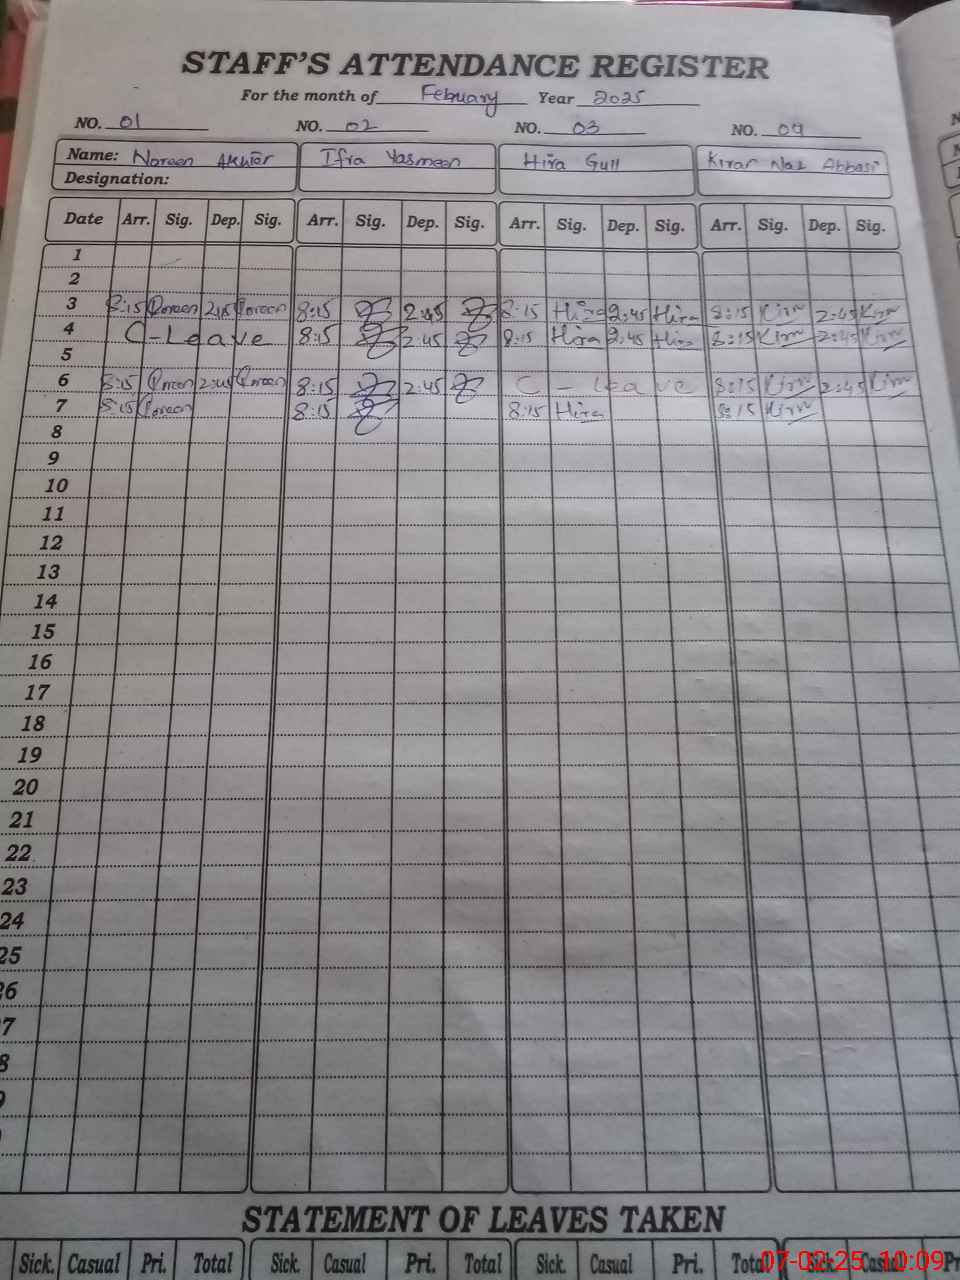 STAFF'S ATTENDANCE REGISTER
For the month of Febuary Year 2025
NO. 01 NO. 02 NO. 03 NO. 04
Name: Noreen Akhtar Ifra Yasmeen Hira Gull Kiran Naz Abbasi
Designation:
Date Arr. Sig. Dep. Sig. Arr. Sig. Dep. Sig. Arr. Sig. Dep. Sig. Arr. Sig. Dep. Sig.
1
2
3 8:15 Noreen 2:45 Noreen 8:15 2:45 8:15 Hira 2:45 Hira 8:15 Kirn 2:45 Kirn
4 C-Leave 8:15 2:45 8:15 Hira 2:45 Hira 8:15 Kirn 2:45 Kirn
5
6 8:15 Noreen 2:45 Noreen 8:15 2:45 C-Leave 8:15 Kirn 2:45 Kirn
7 8:15 Noreen 8:15 8:15 Hira 8:15 Kirn
8
9
10
11
12
13
14
15
16
17
18
19
20
21
22
23
24
25
26
7
8
STATEMENT OF LEAVES TAKEN
Sick. Casual Pri. Total Sick. Casual Pri. Total Sick. Casual Pri. Total Sick. Casual Pr
07-02-25 10:09